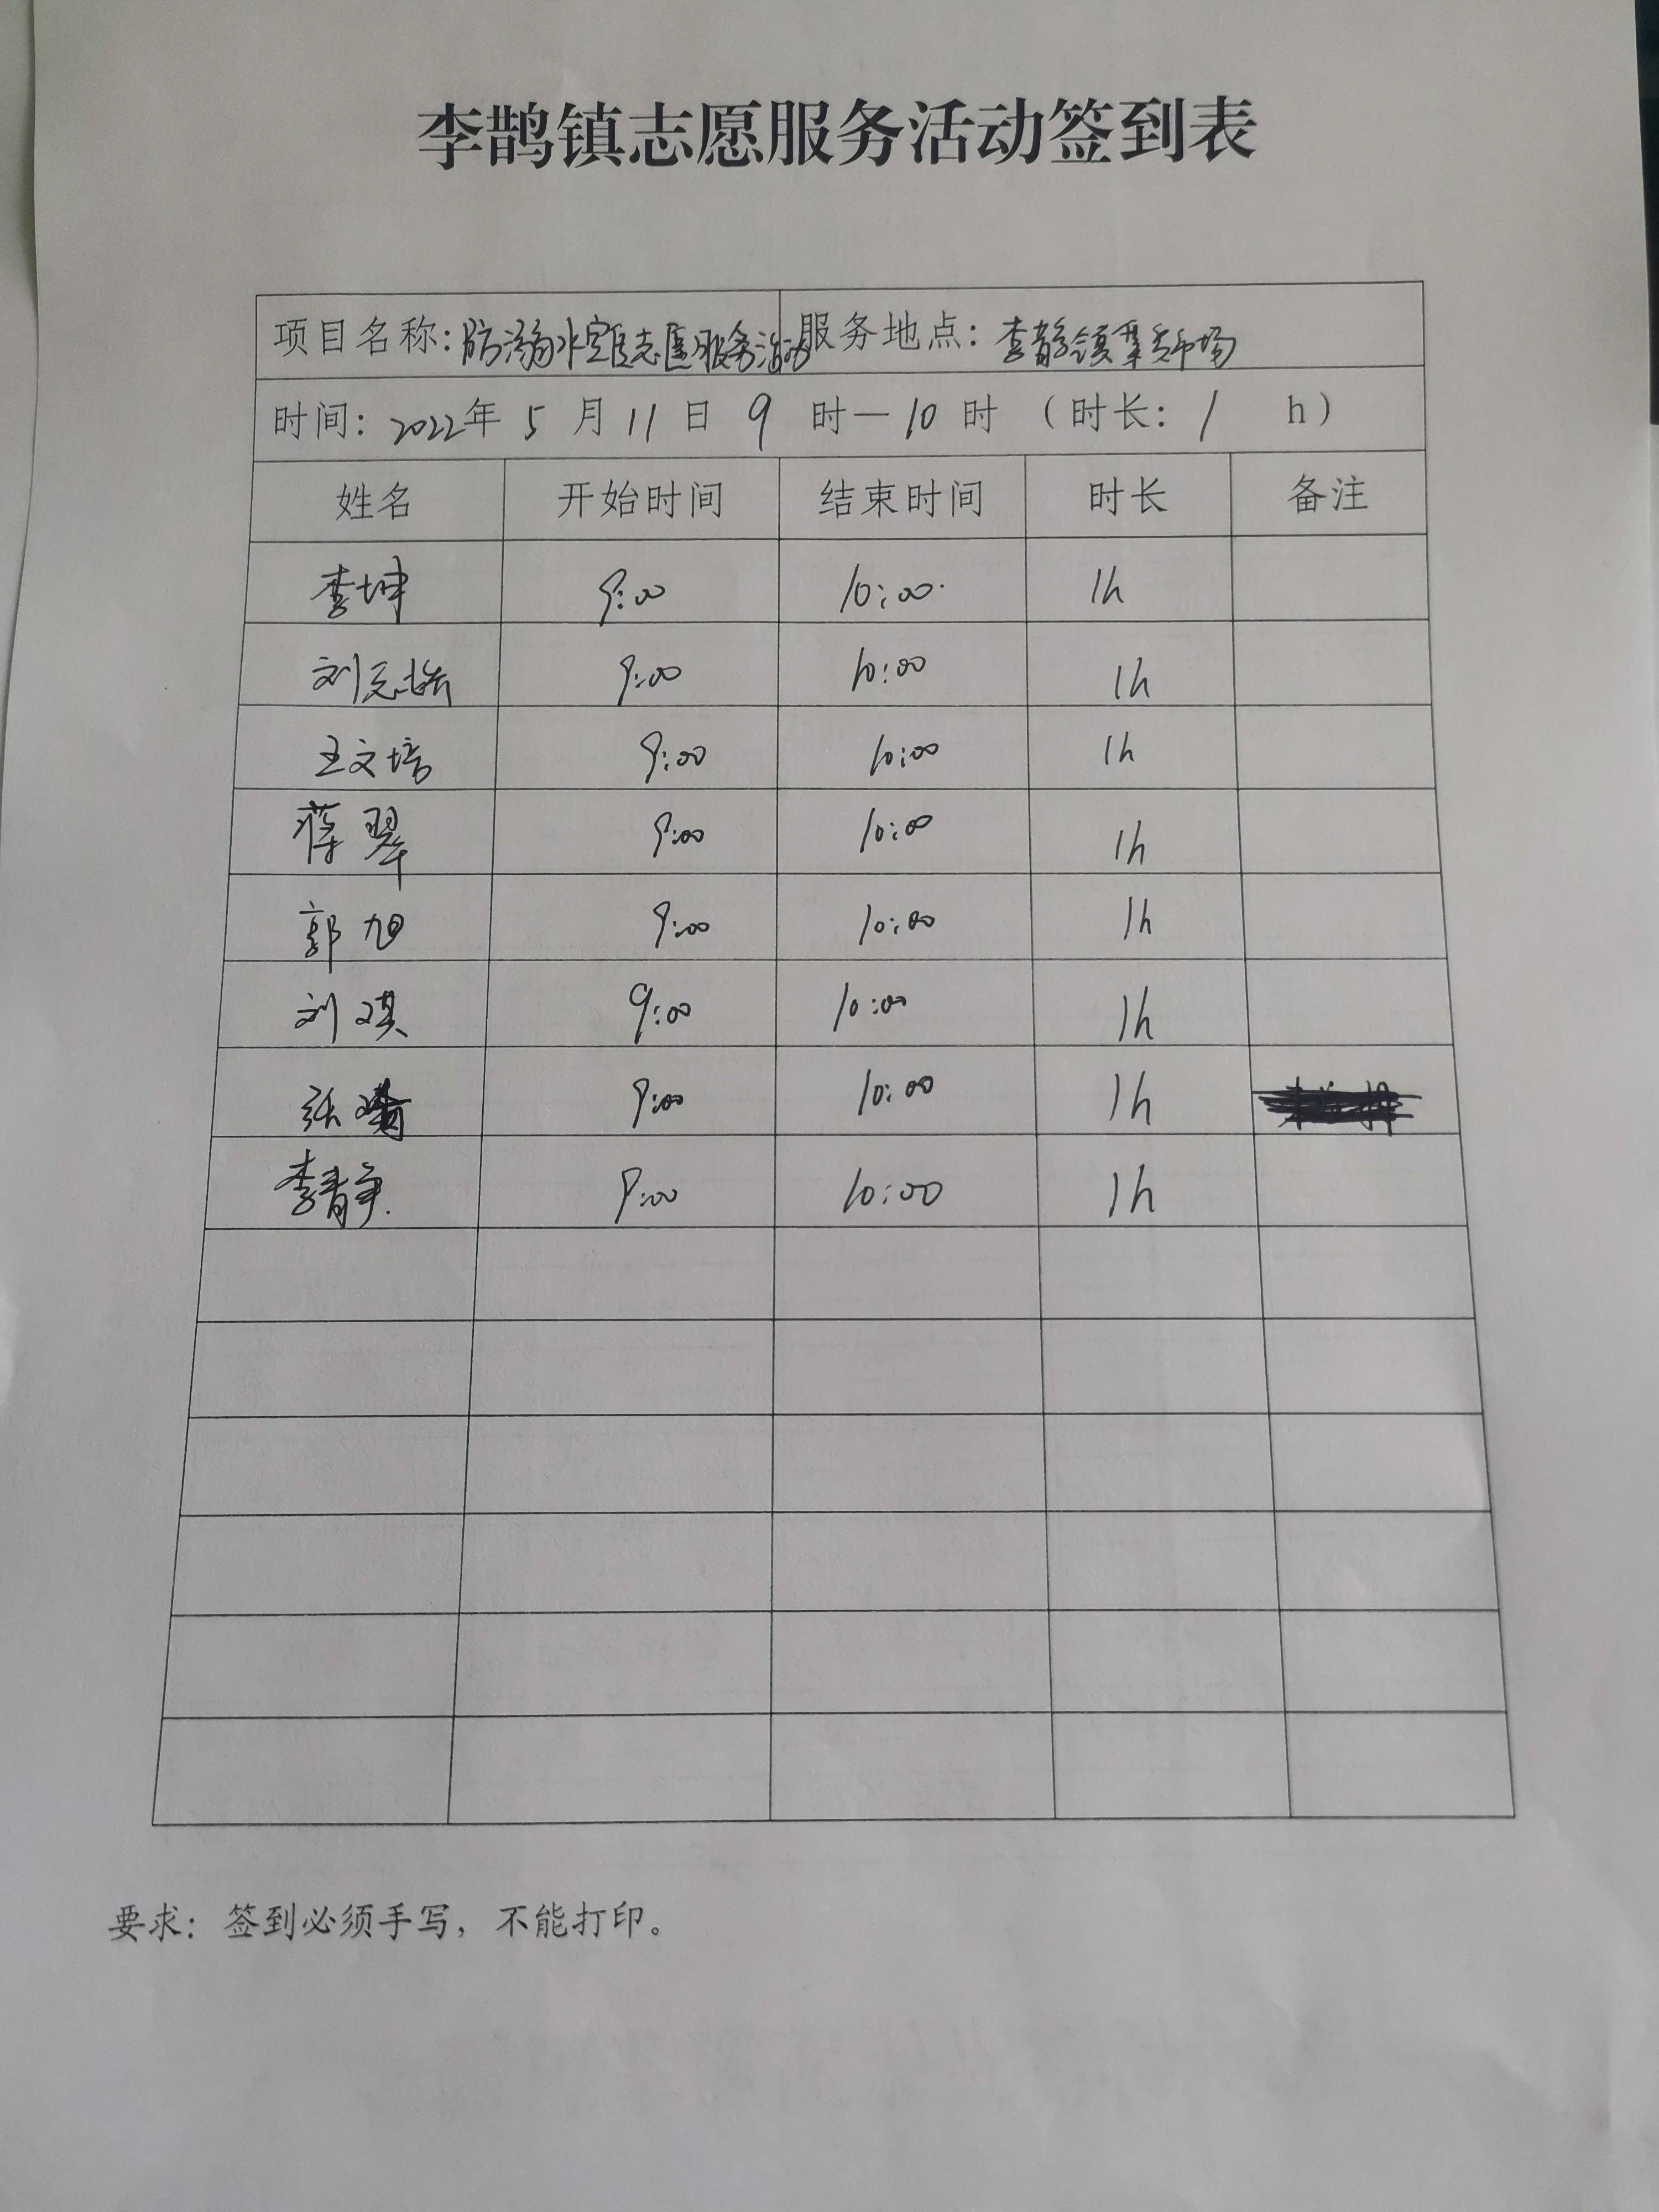 李鹊镇志愿服务活动签到表
项目名称:防溺水宣传志愿服务活动 服务地点:李鹊镇集贸市场
时间:2022年5月11日9时—10时(时长:1h)
姓名 开始时间 结束时间 时长 备注
李坤 9:00 10:00 1h
刘 9:00 10:00 1h
王文培 9:00 10:00 1h
蒋翠 9:00 10:00 1h
郭旭 9:00 10:00 1h
刘琪 9:00 10:00 1h
张 9:00 10:00 1h
李静 9:00 10:00 1h
要求:签到必须手写,不能打印。